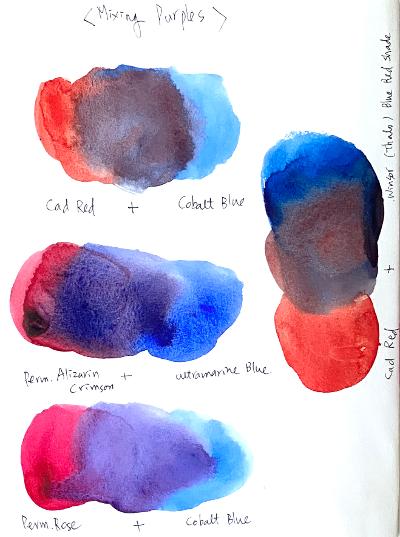 <Mixing Purples>
Cad Red + Cobalt Blue
Perm. Alizarin Crimson + ultramarine Blue
Perm. Rose + Cobalt Blue
Cad Red + Winsor (Thalo) Blue Red shade